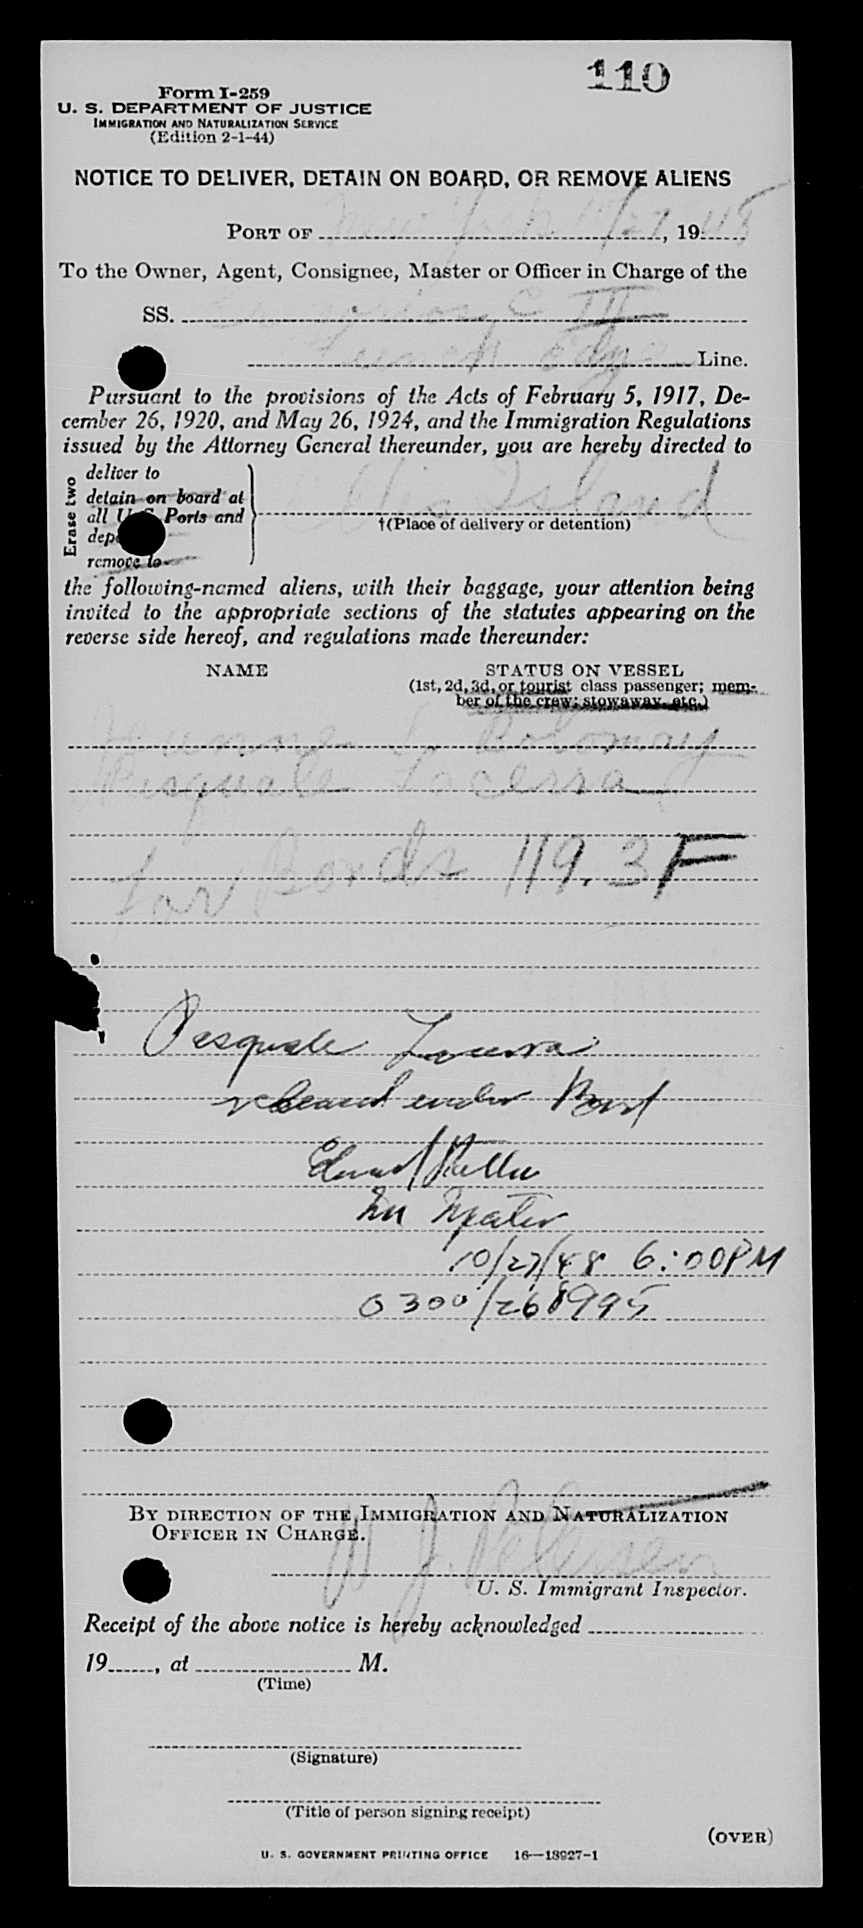 110
Form I-259
U. S. DEPARTMENT OF JUSTICE
IMMIGRATION AND NATURALIZATION SERVICE
(Edition 2-1-44)
NOTICE TO DELIVER, DETAIN ON BOARD, OR REMOVE ALIENS
PORT OF New York 10/27, 1948
To the Owner, Agent, Consignee, Master or Officer in Charge of the
SS. III
Line.
Pursuant to the provisions of the Acts of February 5, 1917, De-
cember 26, 1920, and May 26, 1924, and the Immigration Regulations
issued by the Attorney General thereunder, you are hereby directed to
Erase two
deliver to
detain on board at
all U. S. Ports and
remove to
Ellis Island
†(Place of delivery or detention)
the following-named aliens, with their baggage, your attention being
invited to the appropriate sections of the statutes appearing on the
reverse side hereof, and regulations made thereunder:
NAME STATUS ON VESSEL
(1st, 2d, 3d, or tourist class passenger; mem-
ber of the crew; stowaway, etc.)
Pasquale
for Bonds 119.3F
Pasquale
released under Bond
10/27/48 6:00PM
0300/268995
BY DIRECTION OF THE IMMIGRATION AND NATURALIZATION
OFFICER IN CHARGE.
W J. Petersen
U. S. Immigrant Inspector.
Receipt of the above notice is hereby acknowledged
19, at M.
(Time)
(Signature)
(Title of person signing receipt)
(OVER)
U. S. GOVERNMENT PRINTING OFFICE 16—13927-1